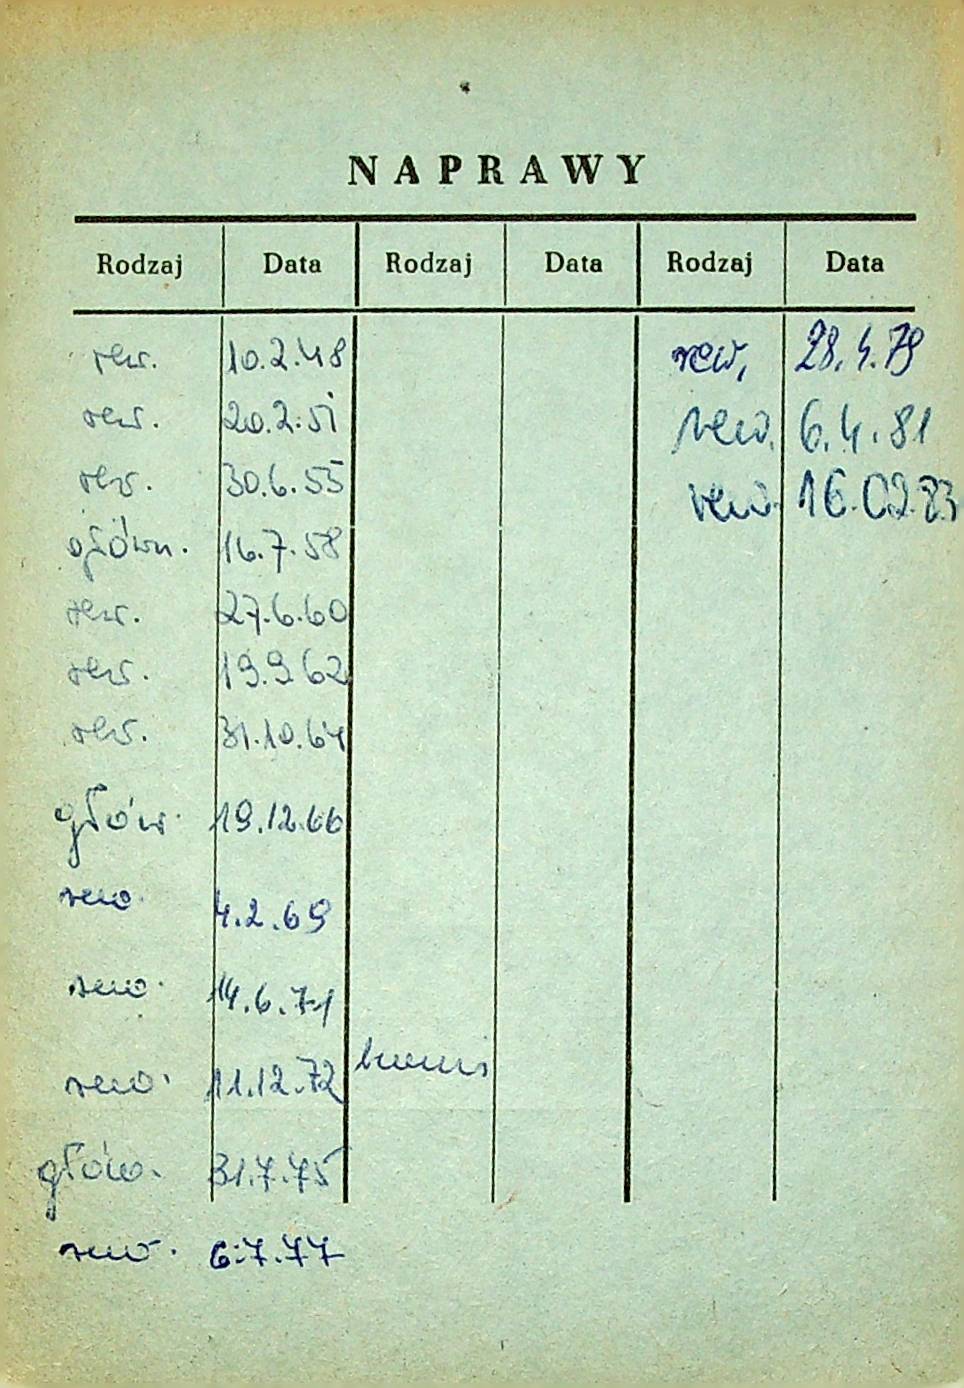 NAPRAWY
Rodzaj Data Rodzaj Data Rodzaj Data
rew. 10.2.48 rew. 28.4.79
rew. 20.2.51 rew. 6.4.81
rew. 30.6.55 rew. 16.02.83
główn. 16.7.58
rew. 27.6.60
rew. 19.9.62
rew. 31.10.64
głów. 19.12.66
rew. 4.2.69
rew. 14.6.71
rew. 11.12.72
głów. 31.7.75
rew. 6.7.77